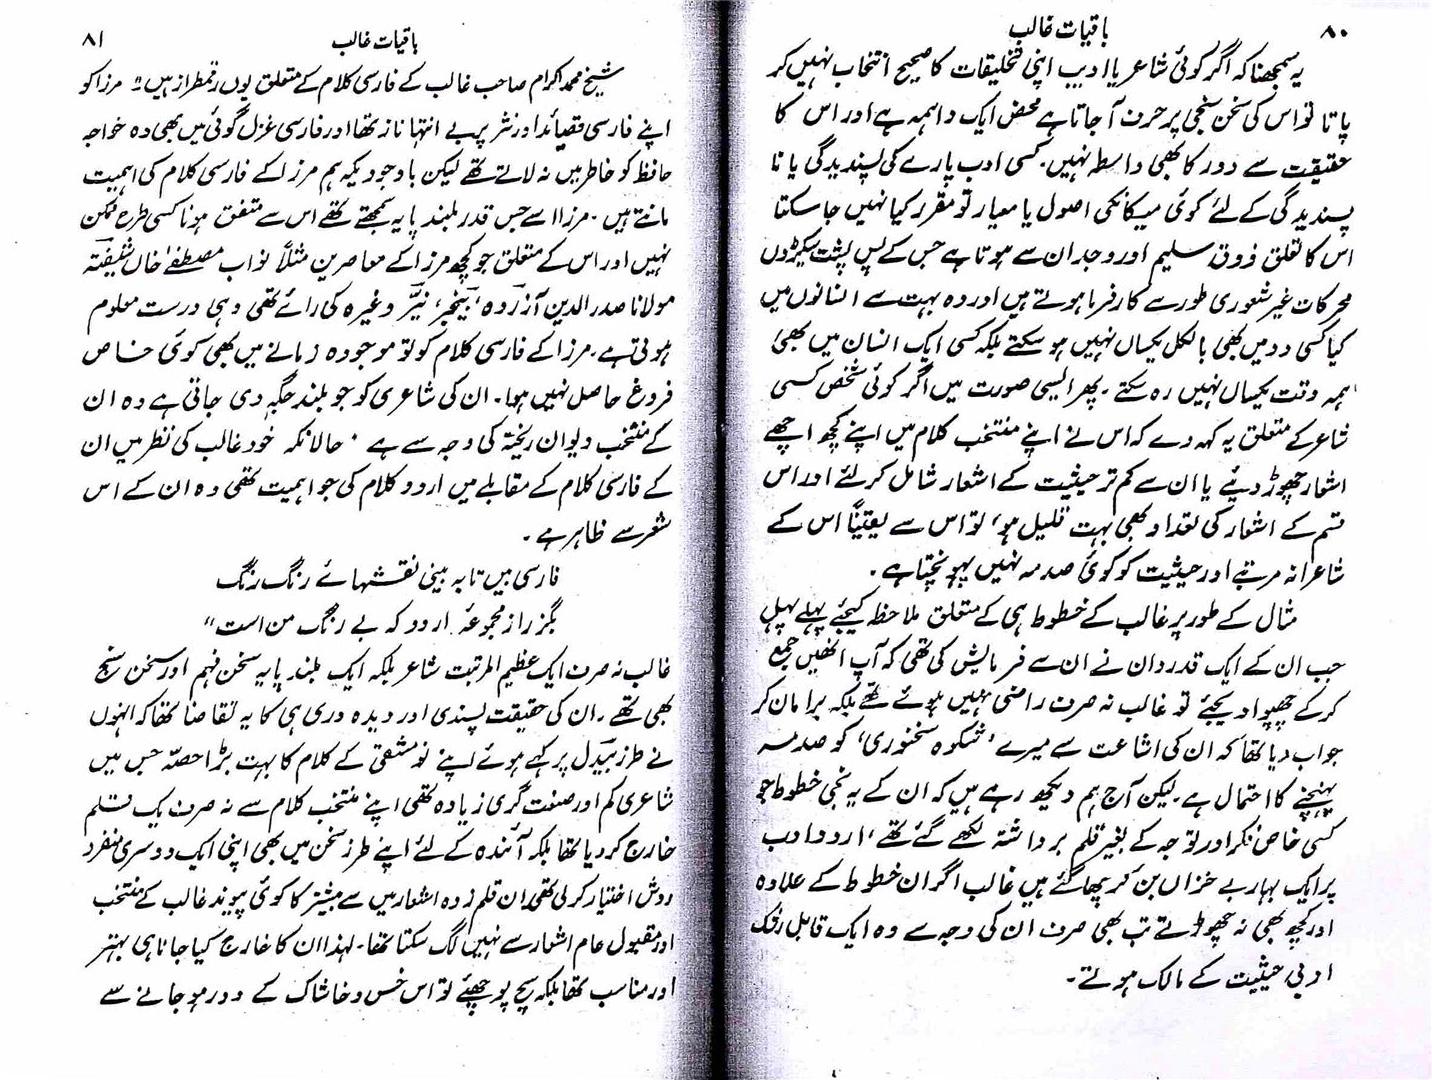 ۸۰
باقیات غالب
یہ سمجھنا کہ اگر کوئی شاعر یا ادیب اپنی تخلیقات کا صحیح انتخاب نہیں کر
پاتا تو اس کی سخن سنجی پر حرف آ جاتا ہے محض ایک واہمہ ہے اور اس کا
حقیقت سے دور کا بھی واسطہ نہیں۔ کسی ادب پارے کی پسندیدگی یا نا
پسندیدگی کے لئے کوئی میکانکی اصول یا معیار تو مقرر کیا نہیں جا سکتا
اس کا تعلق ذوق سلیم اور وجدان سے ہوتا ہے جس کے پس پشت سیکڑوں
محرکات غیر شعوری طور سے کارفرما ہوتے ہیں اور وہ بہت سے انسانوں میں
کیا کسی دو میں بھی بالکل یکساں نہیں ہو سکتے بلکہ کسی ایک انسان میں بھی
ہمہ وقت یکساں نہیں رہ سکتے۔ پھر ایسی صورت میں اگر کوئی شخص کسی
شاعر کے متعلق یہ کہہ دے کہ اس نے اپنے منتخب کلام میں اپنے کچھ اچھے
اشعار چھوڑ دیئے یا ان سے کم تر حیثیت کے اشعار شامل کر لئے اور اس
قسم کے اشعار کی تعداد بھی بہت قلیل ہو، تو اس سے یقیناً اس کے
شاعرانہ مرتبے اور حیثیت کو کوئی صدمہ نہیں پہونچتا ہے۔
مثال کے طور پر غالب کے خطوط ہی کے متعلق ملاحظہ کیجئے پہلے پہل
جب ان کے ایک قدردان نے ان سے فرمایش کی تھی کہ آپ انھیں جمع
کر کے چھپوا دیجئے تو غالب نہ صرف راضی نہیں ہوئے تھے بلکہ برا مان کر
جواب دیا تھا کہ ان کی اشاعت سے میرے ’شکوہ سخنوری‘ کو صدمہ
پہنچنے کا احتمال ہے۔ لیکن آج ہم دیکھ رہے ہیں کہ ان کے یہ نجی خطوط جو
کسی خاص فکر اور توجہ کے بغیر قلم برداشتہ لکھے گئے تھے، اردو ادب
پر ایک بہار بے خزاں بن کر چھا گئے ہیں غالب اگر ان خطوط کے علاوہ
اور کچھ بھی نہ چھوڑتے تب بھی صرف ان کی وجہ سے وہ ایک قابل رشک
ادبی حیثیت کے مالک ہوتے۔
باقیات غالب
۸۱
شیخ محمد اکرام صاحب غالب کے فارسی کلام کے متعلق یوں رقمطراز ہیں "مرزا کو
اپنے فارسی قصائد اور نثر پر بے انتہا ناز تھا اور فارسی غزل گوئی میں بھی وہ خواجہ
حافظ کو خاطر میں نہ لاتے تھے لیکن باوجودیکہ ہم مرزا کے فارسی کلام کی اہمیت
مانتے ہیں۔ مرزا اسے جس قدر بلند پایہ سمجھتے تھے اس سے متفق ہونا کسی طرح ممکن
نہیں اور اس کے متعلق جو کچھ مرزا کے معاصرین مثلاً نواب مصطفےٰ خاں شیفتہ
مولانا صدرالدین آزردہ، بیخبر، نیر وغیرہ کی رائے تھی وہی درست معلوم
ہوتی ہے۔ مرزا کے فارسی کلام کو تو موجودہ زمانے میں بھی کوئی خاص
فروغ حاصل نہیں ہوا۔ ان کی شاعری کو جو بلند جگہ دی جاتی ہے وہ ان
کے منتخب دیوان ریختہ کی وجہ سے ہے۔ حالانکہ خود غالب کی نظر میں ان
کے فارسی کلام کے مقابلے میں اردو کلام کی جو اہمیت تھی وہ ان کے اس
شعر سے ظاہر ہے۔
فارسی بیں تا بہ بینی نقشہائے رنگ رنگ
بگزر از مجموعۂ اردو کہ بے رنگ من است"
غالب نہ صرف ایک عظیم المرتبت شاعر بلکہ ایک بلند پایہ سخن فہم اور سخن سنج
بھی تھے۔ ان کی حقیقت پسندی اور دیدہ وری ہی کا یہ تقاضا تھا کہ انہوں
نے طرز بیدل پر کہے ہوئے اپنے نو مشقی کے کلام کا بہت بڑا حصہ جس میں
شاعری کم اور صنعت گری زیادہ تھی اپنے منتخب کلام سے نہ صرف یک قلم
خارج کر دیا تھا بلکہ آئندہ کے لئے اپنے طرز سخن میں بھی اپنی ایک دوسری منفرد
روش اختیار کر لی تھی۔ ان قلم زدہ اشعار میں سے بیشتر کا کوئی پیوند غالب کے منتخب
اور مقبول عام اشعار سے نہیں لگ سکتا تھا۔ لہذا ان کا خارج کیا جانا ہی بہتر
اور مناسب تھا بلکہ سچ پوچھئے تو اس خس و خاشاک کے دور ہو جانے سے